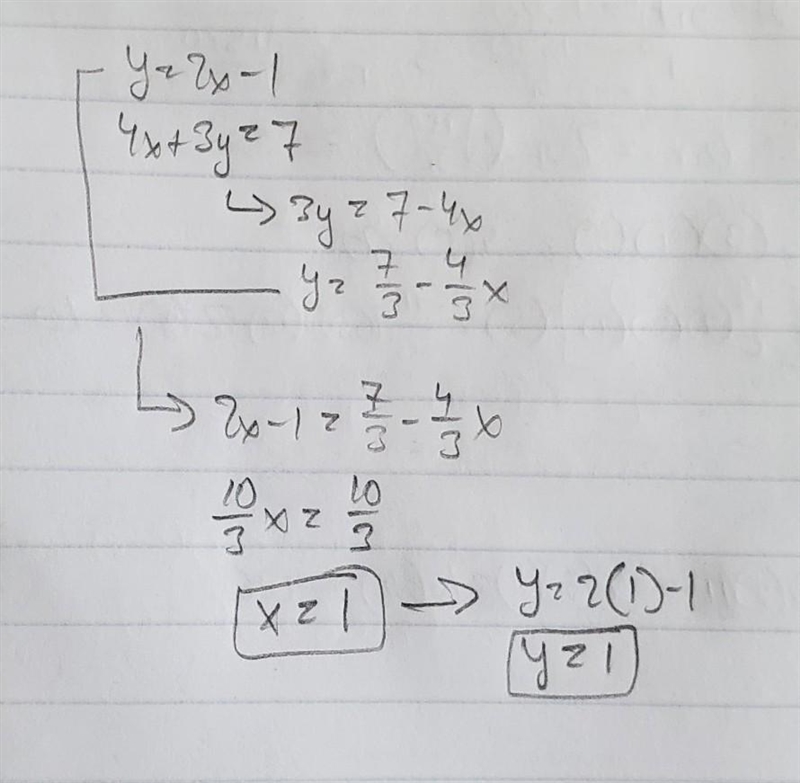 y=2x-1
4x+3y=7
↳ 3y=7-4x
y=7/3-4/3x
↳ 2x-1=7/3-4/3x
10/3x=10/3
x=1 → y=2(1)-1
y=1